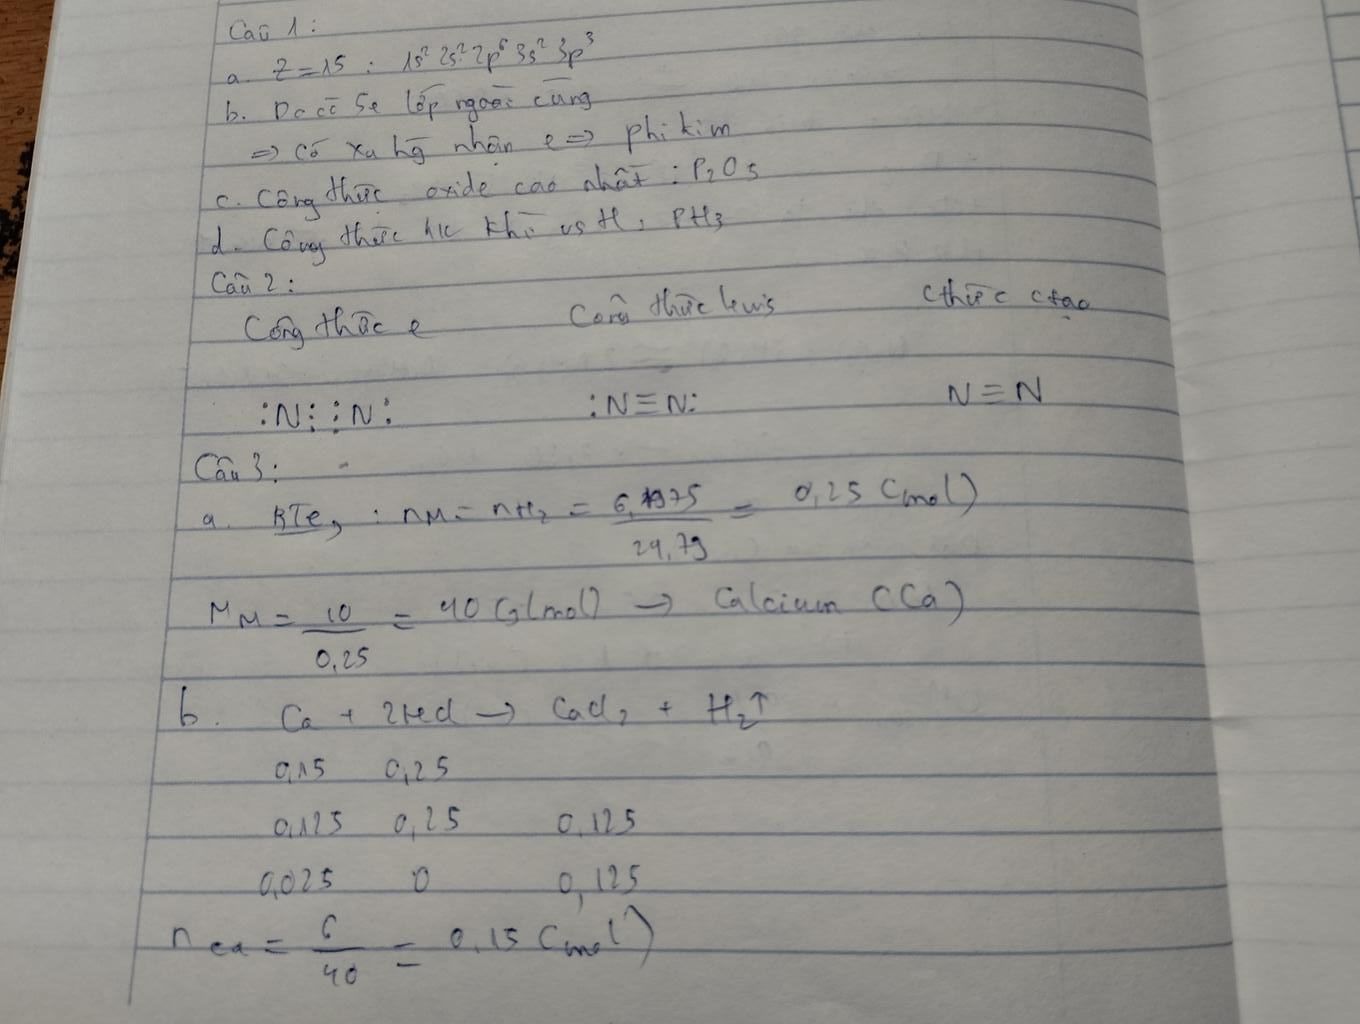 Câu 1:
a. Z=15 : 1s² 2s² 2p⁶ 3s² 3p³
b. Do có 5e lớp ngoài cùng
=> Có xu hg nhận e => phi kim
c. Công thức oxide cao nhất : P₂O₅
d. Công thức h/c khí vs H : PH₃
Câu 2:
Công thức e Công thức lewis Cthức ctạo
:N⋮⋮N: :N≡N: N≡N
Câu 3:
a. BTe, : nM = nH₂ = 6,1975/24,79 = 0,25 (mol)
M_M = 10/0,25 = 40 (g/mol) → Calcium (Ca)
b. Ca + 2HCl → CaCl₂ + H₂↑
0,15 0,25
0,125 0,25 0,125
0,025 0 0,125
nCa = 6/40 = 0,15 (mol)